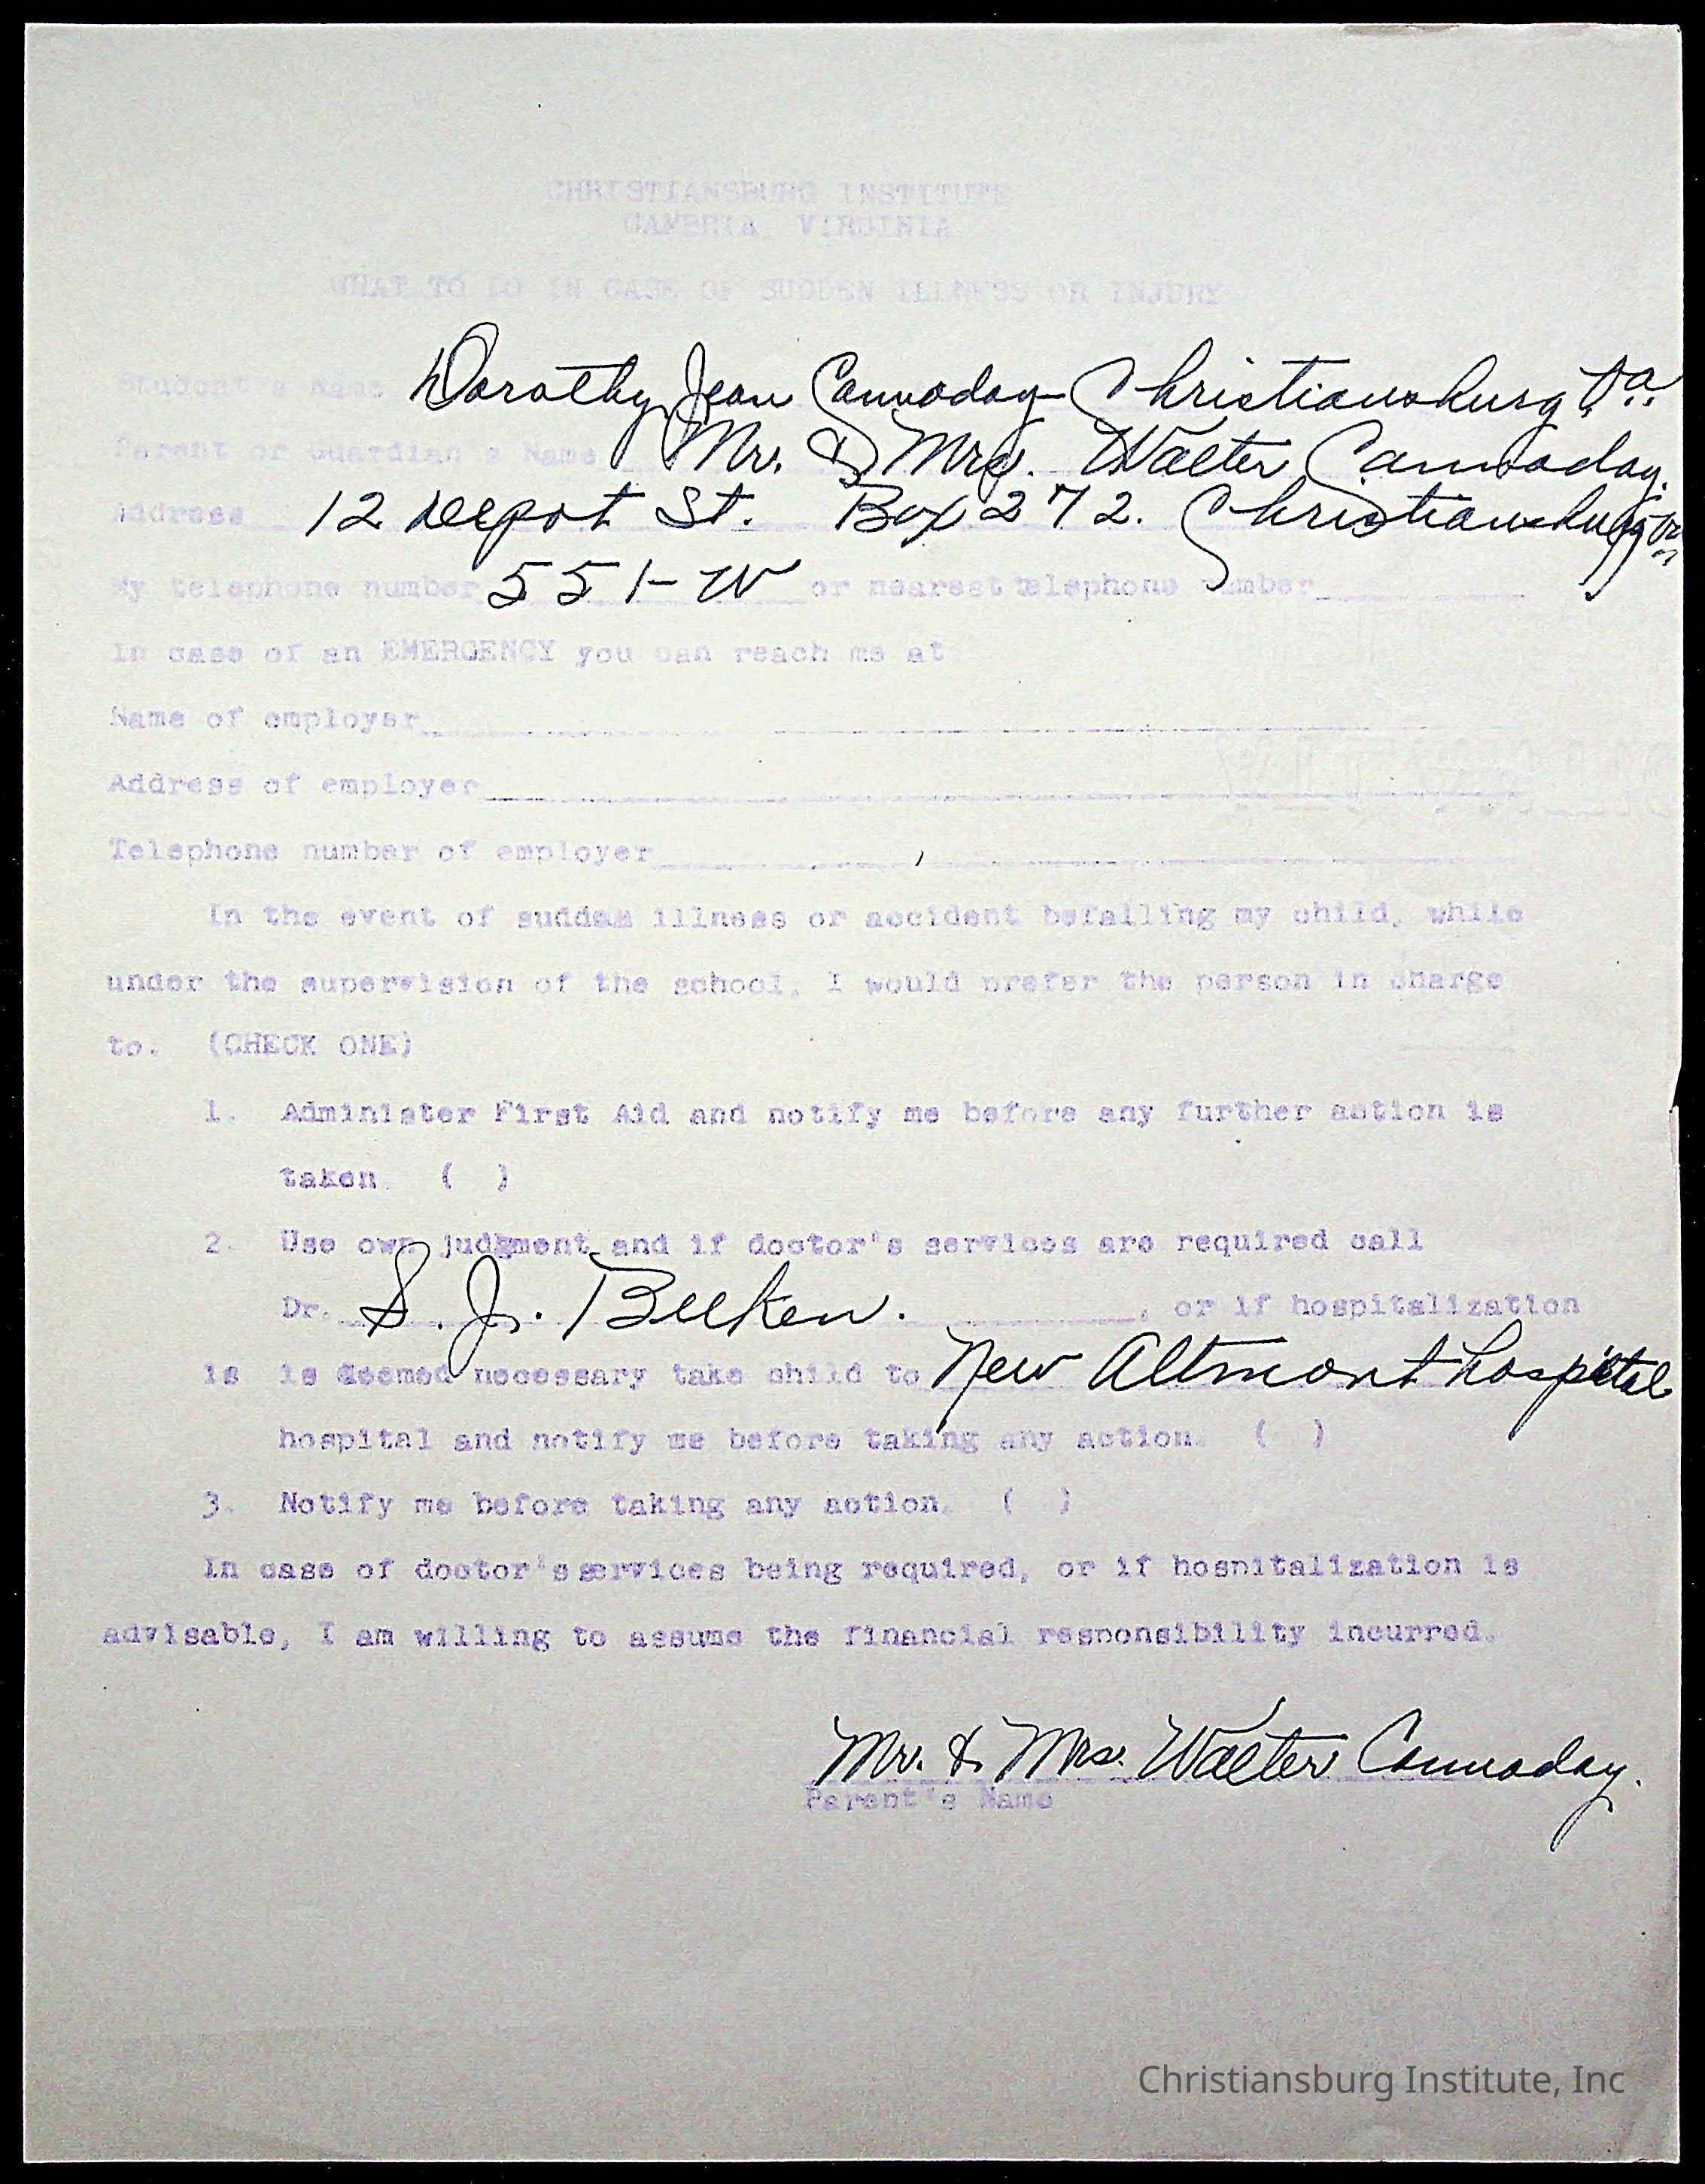 CHRISTIANSBURG INSTITUTE
CAMBRIA, VIRGINIA
WHAT TO DO IN CASE OF SUDDEN ILLNESS OR INJURY
Student's Name Dorothy Jean Cannaday Christiansburg Va.
Parent or Guardian's Name Mr. & Mrs. Walter Cannaday.
Address 12 Depot St. Box 272. Christiansburg Va
My telephone number 551-W or nearest telephone number
In case of an EMERGENCY you can reach me at
Name of employer
Address of employer
Telephone number of employer
In the event of sudden illness or accident befalling my child, while
under the supervision of the school, I would prefer the person in charge
to. (CHECK ONE)
1. Administer First Aid and notify me before any further action is
taken. ( )
2. Use own judgment and if doctor's services are required call
Dr. S. J. Beeken. , or if hospitalization
is is deemed necessary take child to New Altmont hospital
hospital and notify me before taking any action. ( )
3. Notify me before taking any action. ( )
In case of doctor's services being required, or if hospitalization is
advisable, I am willing to assume the financial responsibility incurred.
Mr. & Mrs. Walter Cannaday.
Parent's Name
Christiansburg Institute, Inc